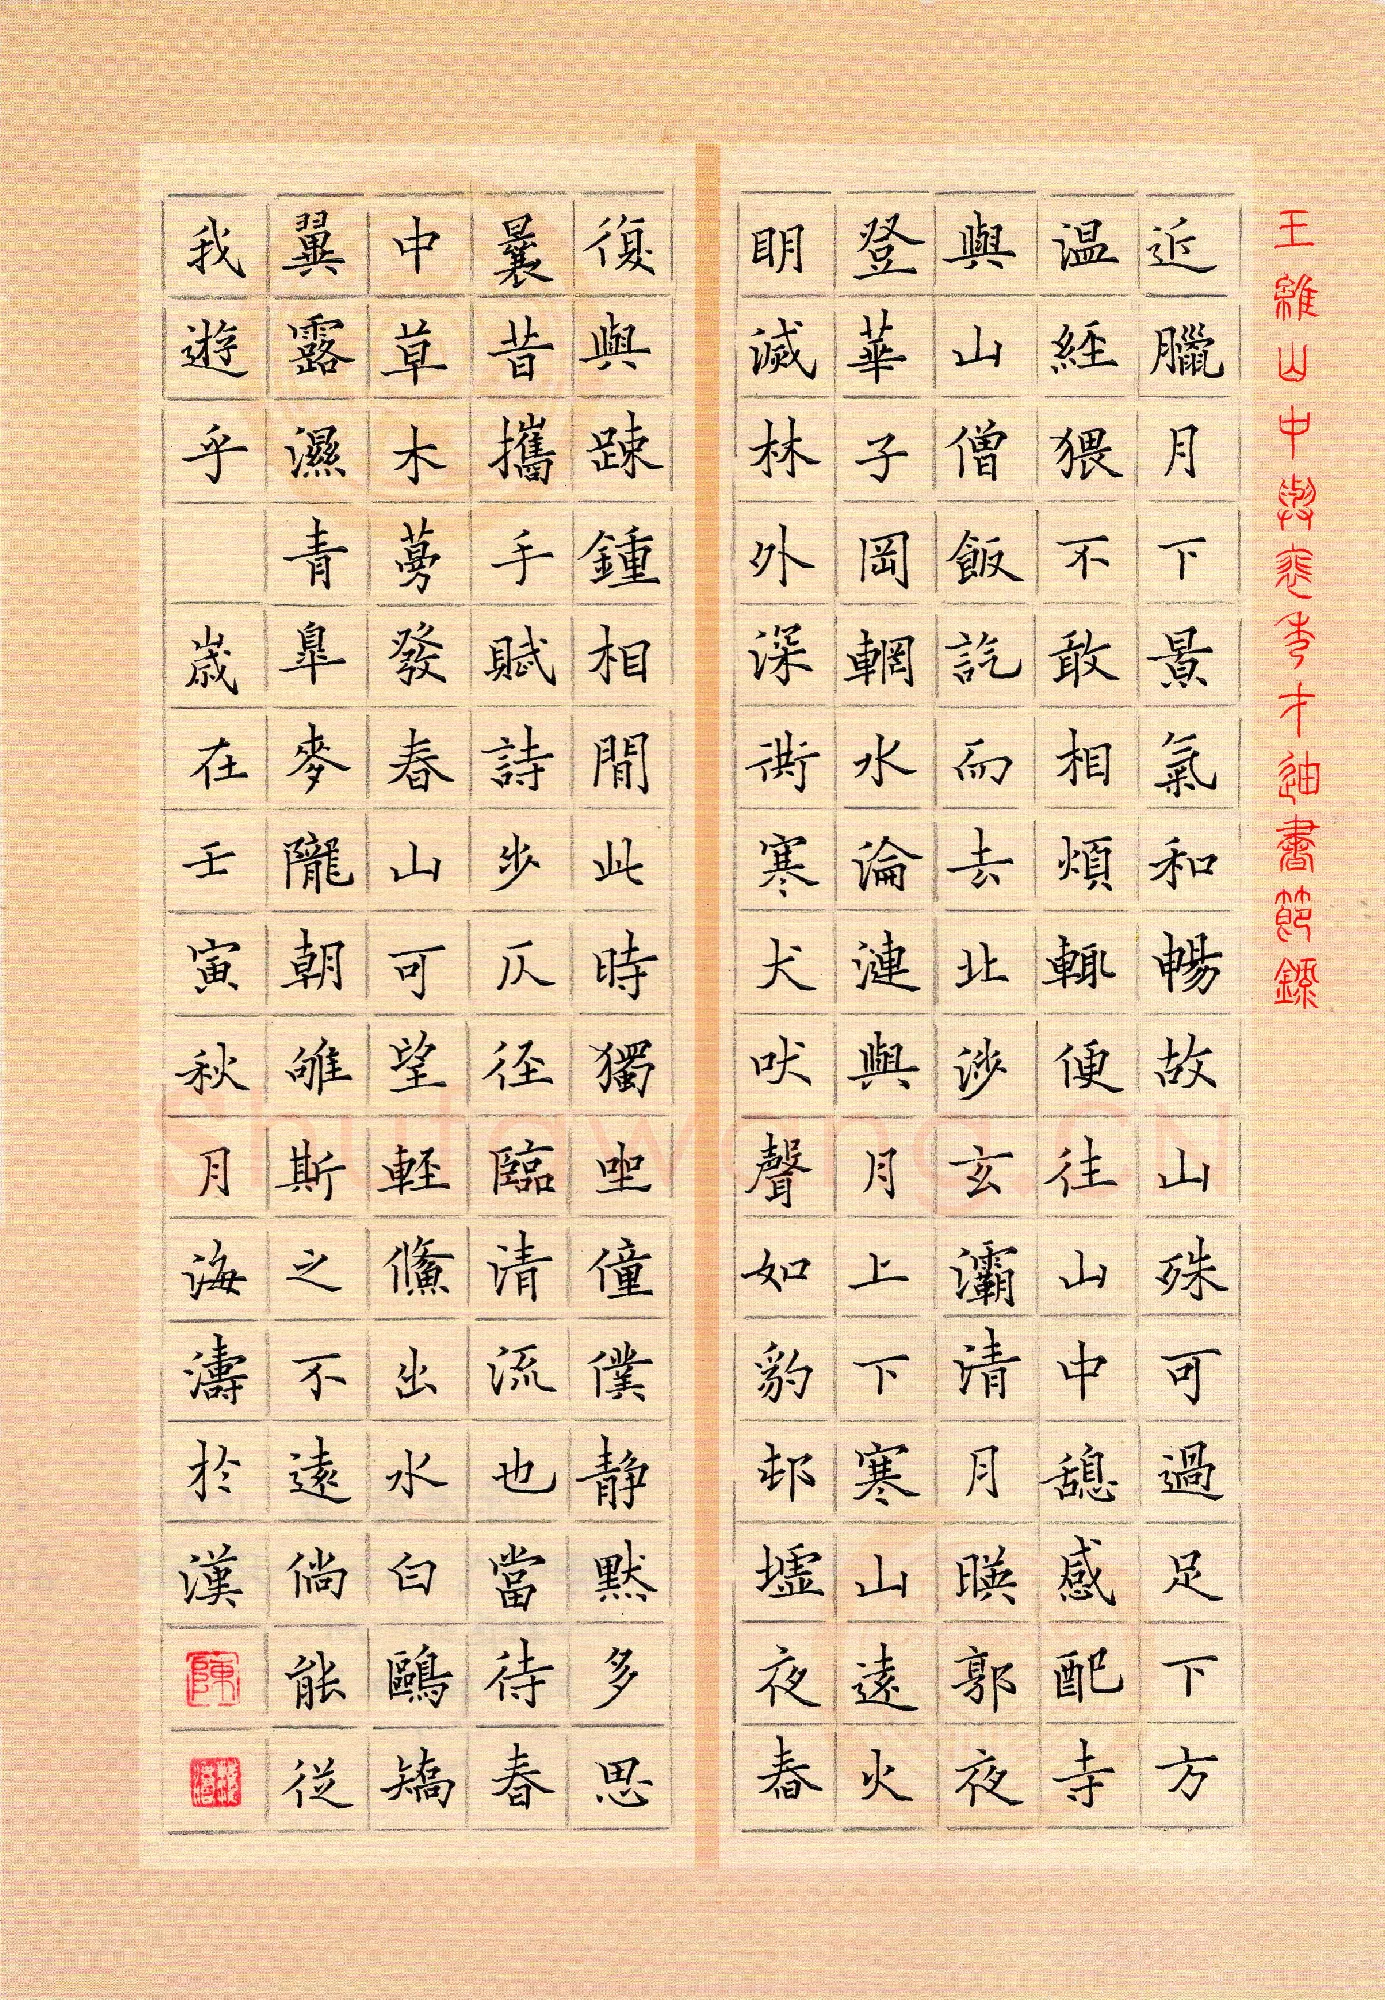 王維山中與裴秀才迪書節錄
近臘月下景氣和暢故山殊可過足下方
温經猥不敢相煩輒便往山中憩感配寺
與山僧飯訖而去北涉玄灞清月暎郭夜
登華子岡輞水淪漣與月上下寒山遠火
明滅林外深衖寒犬吠聲如豹邨墟夜舂
復與踈鍾相間此時獨坐僮僕静默多思
曩昔攜手賦詩步仄徑臨清流也當待春
中草木蔓發春山可望輕鯈出水白鷗矯
翼露濕青皋麥隴朝雊斯之不遠倘能從
我遊乎 歲在壬寅秋月海濤於漢
陳
Shufawang.CN